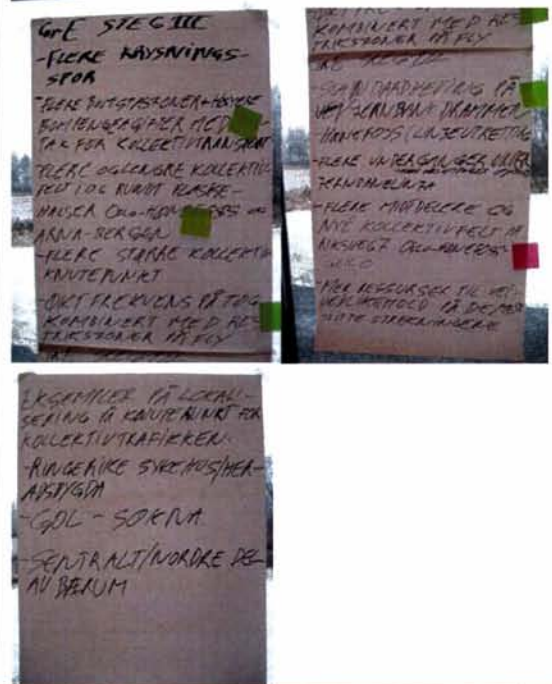 GrE STEG III
- FLERE KRYSNINGS-
SPOR
- FLERE BOMSTASJONER + HØYERE
BOMPENGEAVGIFTER MED
TAK FOR KOLLEKTIVTRANSPORT
- FLERE OG LENGRE KOLLEKTIV
FELT I OG RUNDT FLASKE-
HALSER OSLO-HØNEFOSS OG
ARNA-BERGEN
- FLERE STØRRE KOLLEKTIV
KNUTEPUNKT
- ØKT FREKVENS PÅ TOG
KOMBINERT MED RES
TRIKSJONER PÅ FLY
KOMBINERT MED RES
TRIKSJONER PÅ FLY
- STANDARDHEVING PÅ
JERNBANE DRAMMEN
HØNEFOSS / LINJEUTRETTING
- FLERE UNDERGANGER UNDER
JERNBANELINJA
- FLERE MIDTDELERE OG
NYE KOLLEKTIVFELT
RIKSVEG 7 OSLO-HØNEFOSS-
- MER RESSURSER TIL VEI-
VEDLIKEHOLD PÅ DE MEST
STREKNINGENE
EKSEMPLER PÅ LOKALI-
SERING AV KNUTEPUNKT FOR
KOLLEKTIVTRAFIKKEN.
- RINGERIKE SYKEHUS/HER-
ADSBYGDA
- GOL - SOKNA
- SENTRALT/NORDRE DEL
AV BÆRUM